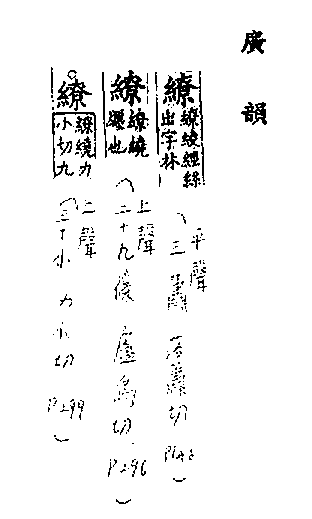 廣韻
繚 繚綾經絲出字林
(平聲 三蕭 落蕭切 P146)
繚 繚繞纏也
(上聲 二十九篠 盧鳥切 P296)
繚 繚繞力小切九
(上聲 三十小 力小切 P299)